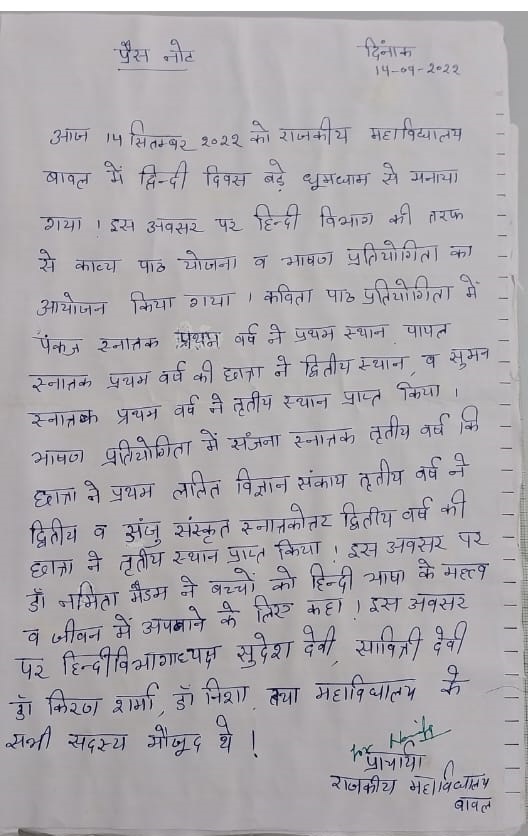 प्रैस नोट
दिनांक
14-09-2022
आज 14 सितम्बर 2022 को राजकीय महाविद्यालय
बावल में हिन्दी दिवस बड़े धूमधाम से मनाया
गया । इस अवसर पर हिन्दी विभाग की तरफ
से काव्य पाठ योजना व भाषण प्रतियोगिता का
आयोजन किया गया । कविता पाठ प्रतियोगिता में
पंकज स्नातक प्रथम वर्ष ने प्रथम स्थान पापत
स्नातक प्रथम वर्ष की छात्रा ने द्वितीय स्थान, व सुमन
स्नातक प्रथम वर्ष ने तृतीय स्थान प्राप्त किया ।
भाषण प्रतियोगिता में संजना स्नातक तृतीय वर्ष कि
छात्रा ने प्रथम ललित विज्ञान संकाय तृतीय वर्ष ने
द्वितीय व अंजु संस्कृत स्नातकोत्तर द्वितीय वर्ष की
छात्रा ने तृतीय स्थान प्राप्त किया । इस अवसर पर
डॉ नमिता मैडम ने बच्चों को हिन्दी भाषा के महत्व
व जीवन में अपनाने के लिए कहा । इस अवसर
पर हिन्दी विभागाध्यक्ष सुदेश देवी, सावित्री देवी
डॉ किरण शर्मा, डॉ निशा, तथा महाविद्यालय के
सभी सदस्य मौजूद थे !
for
प्राचार्या
राजकीय महाविद्यालय
बावल